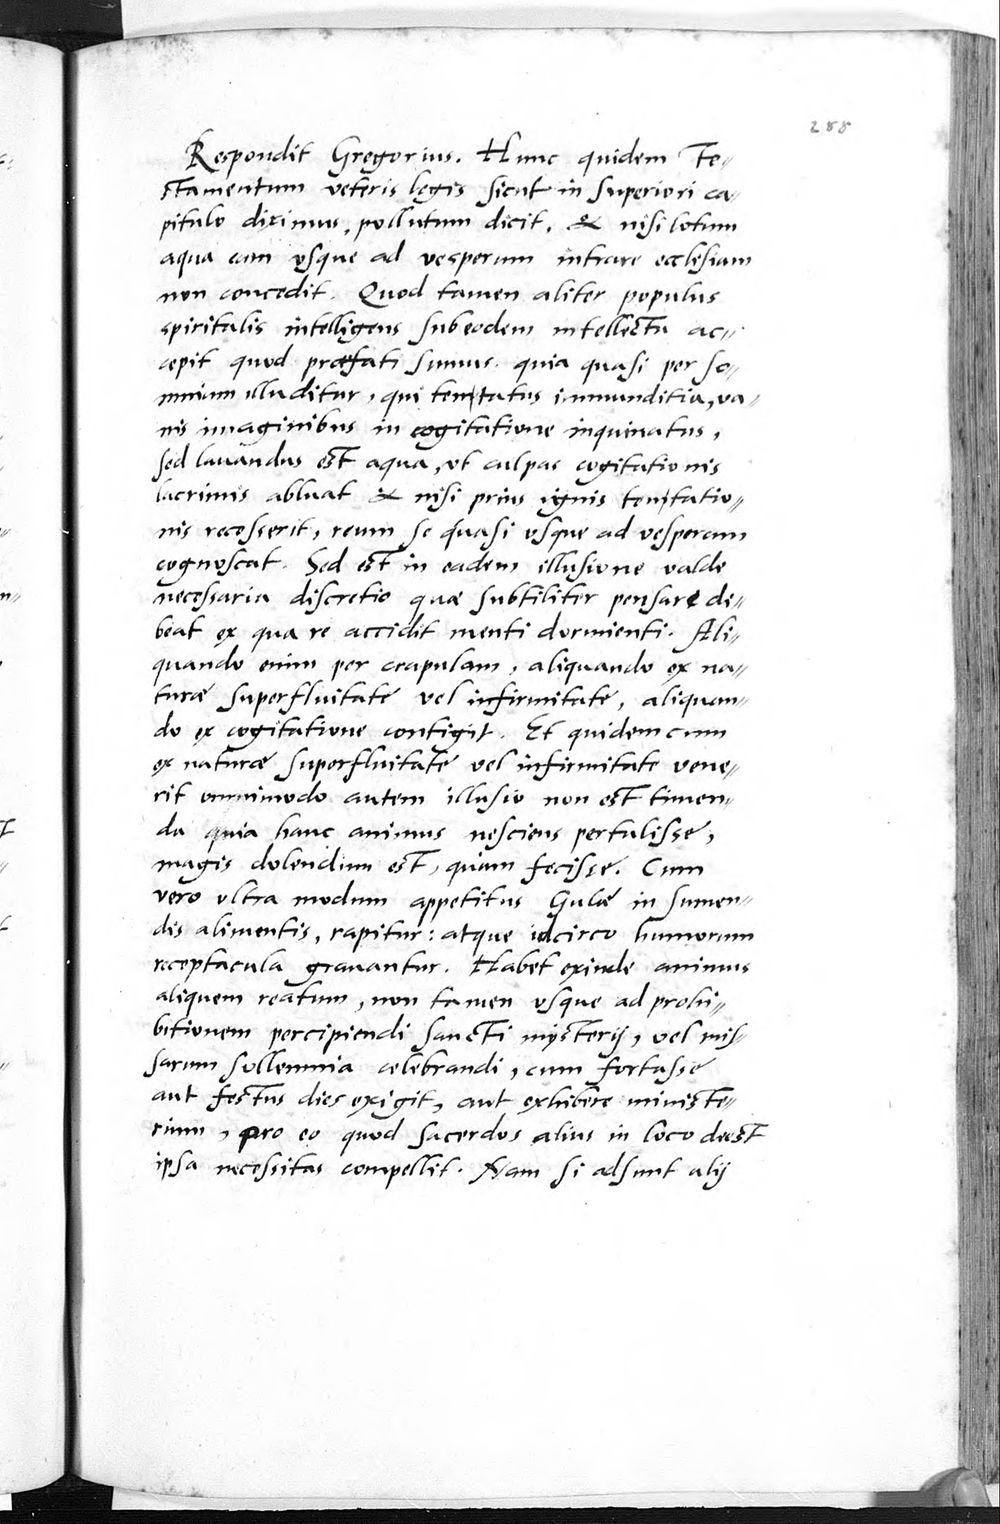 288
Respondit Gregorius. Hunc quidem Te〃
stamentum veteris legis sicut in superiori ca〃
pitulo diximus, pollutum dicit, & nisi lotum
aqua eum vsque ad vesperum intrare ecclesiam
non concedit. Quod tamen aliter populus
spiritalis intelligens sub eodem intellectu ac〃
cepit quod præfati sumus. quia quasi per so〃
mnium illuditur, qui tentatus immunditia, va〃
nis imaginibus in cogitatione inquinatus,
sed lauandus est aqua, vt culpas cogitationis
lacrimis abluat & nisi prius ignis tentatio〃
nis recesserit, reum se quasi vsque ad vesperum
cognoscat. Sed est in eadem illusione valde
necessaria discretio quæ subtiliter pensare de〃
beat ex qua re accidit menti dormienti. Ali〃
quando enim per crapulam, aliquando ex na〃
turæ superfluitate vel infirmitate, aliquan〃
do ex cogitatione contigit. Et quidem cum
ex naturæ superfluitate vel infirmitate vene〃
rit omnimodo autem illusio non est timen〃
da quia hanc animus nesciens pertulisse,
magis dolendum est, quàm fecisse. Cum
vero vltra modum appetitus Gulæ in sumen〃
dis alimentis, rapitur: atque idcirco humorum
receptacula grauantur. Habet exinde animus
aliquem reatum, non tamen vsque ad prohi〃
bitionem percipiendi sancti mysterij, vel mis〃
sarum sollemnia celebrandi, cum fortasse
aut festus dies exigit, aut exhibere ministe〃
rium, pro eo quod sacerdos alius in loco deest
ipsa necessitas compellit. Nam si adsunt alij